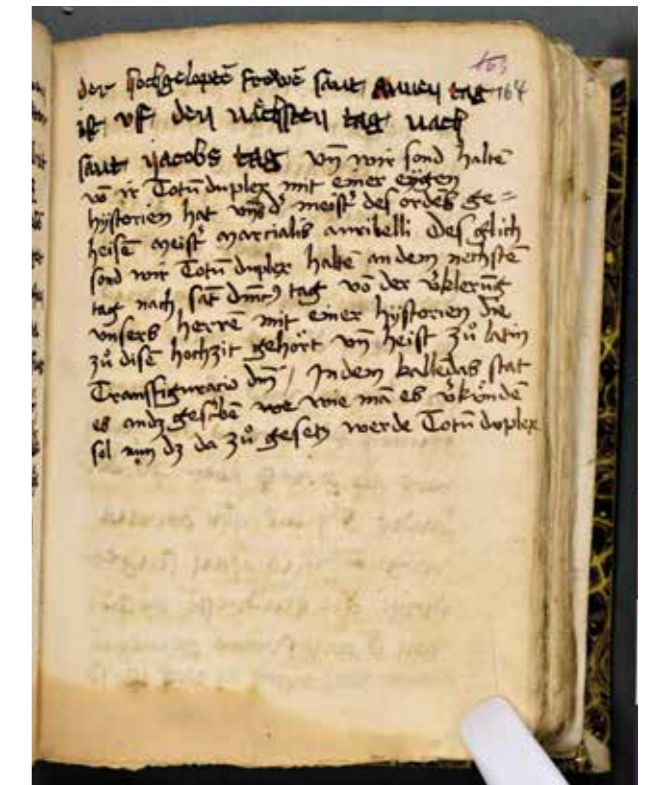 163
der hochgelopte frowe sant Annen tag 164
ist vf den nächsten tag nach
sant jacobs tag vn̄ wir sond haltē
vō ir Totū duplex mit einer eygen
hystorien hat vnsʼ meistʼ des ordēs ge=
heisē meistʼ marcialis auribelli Des glich
sond wir Totū duplex haltē an dem nechstē
tag nach sāt dm̄icꝰ tag vō der vʼklerūg
vnsers herrē mit einer hystorien die
zů disē hochzit gehört vn̄ heist zů latin
Transfiguracio dn̄i / In dem kallēdas stat
es andʒ gescʼbē we wie mā es vʼkündē
sol nun dʒ da zů gesetz werde Totū duplex